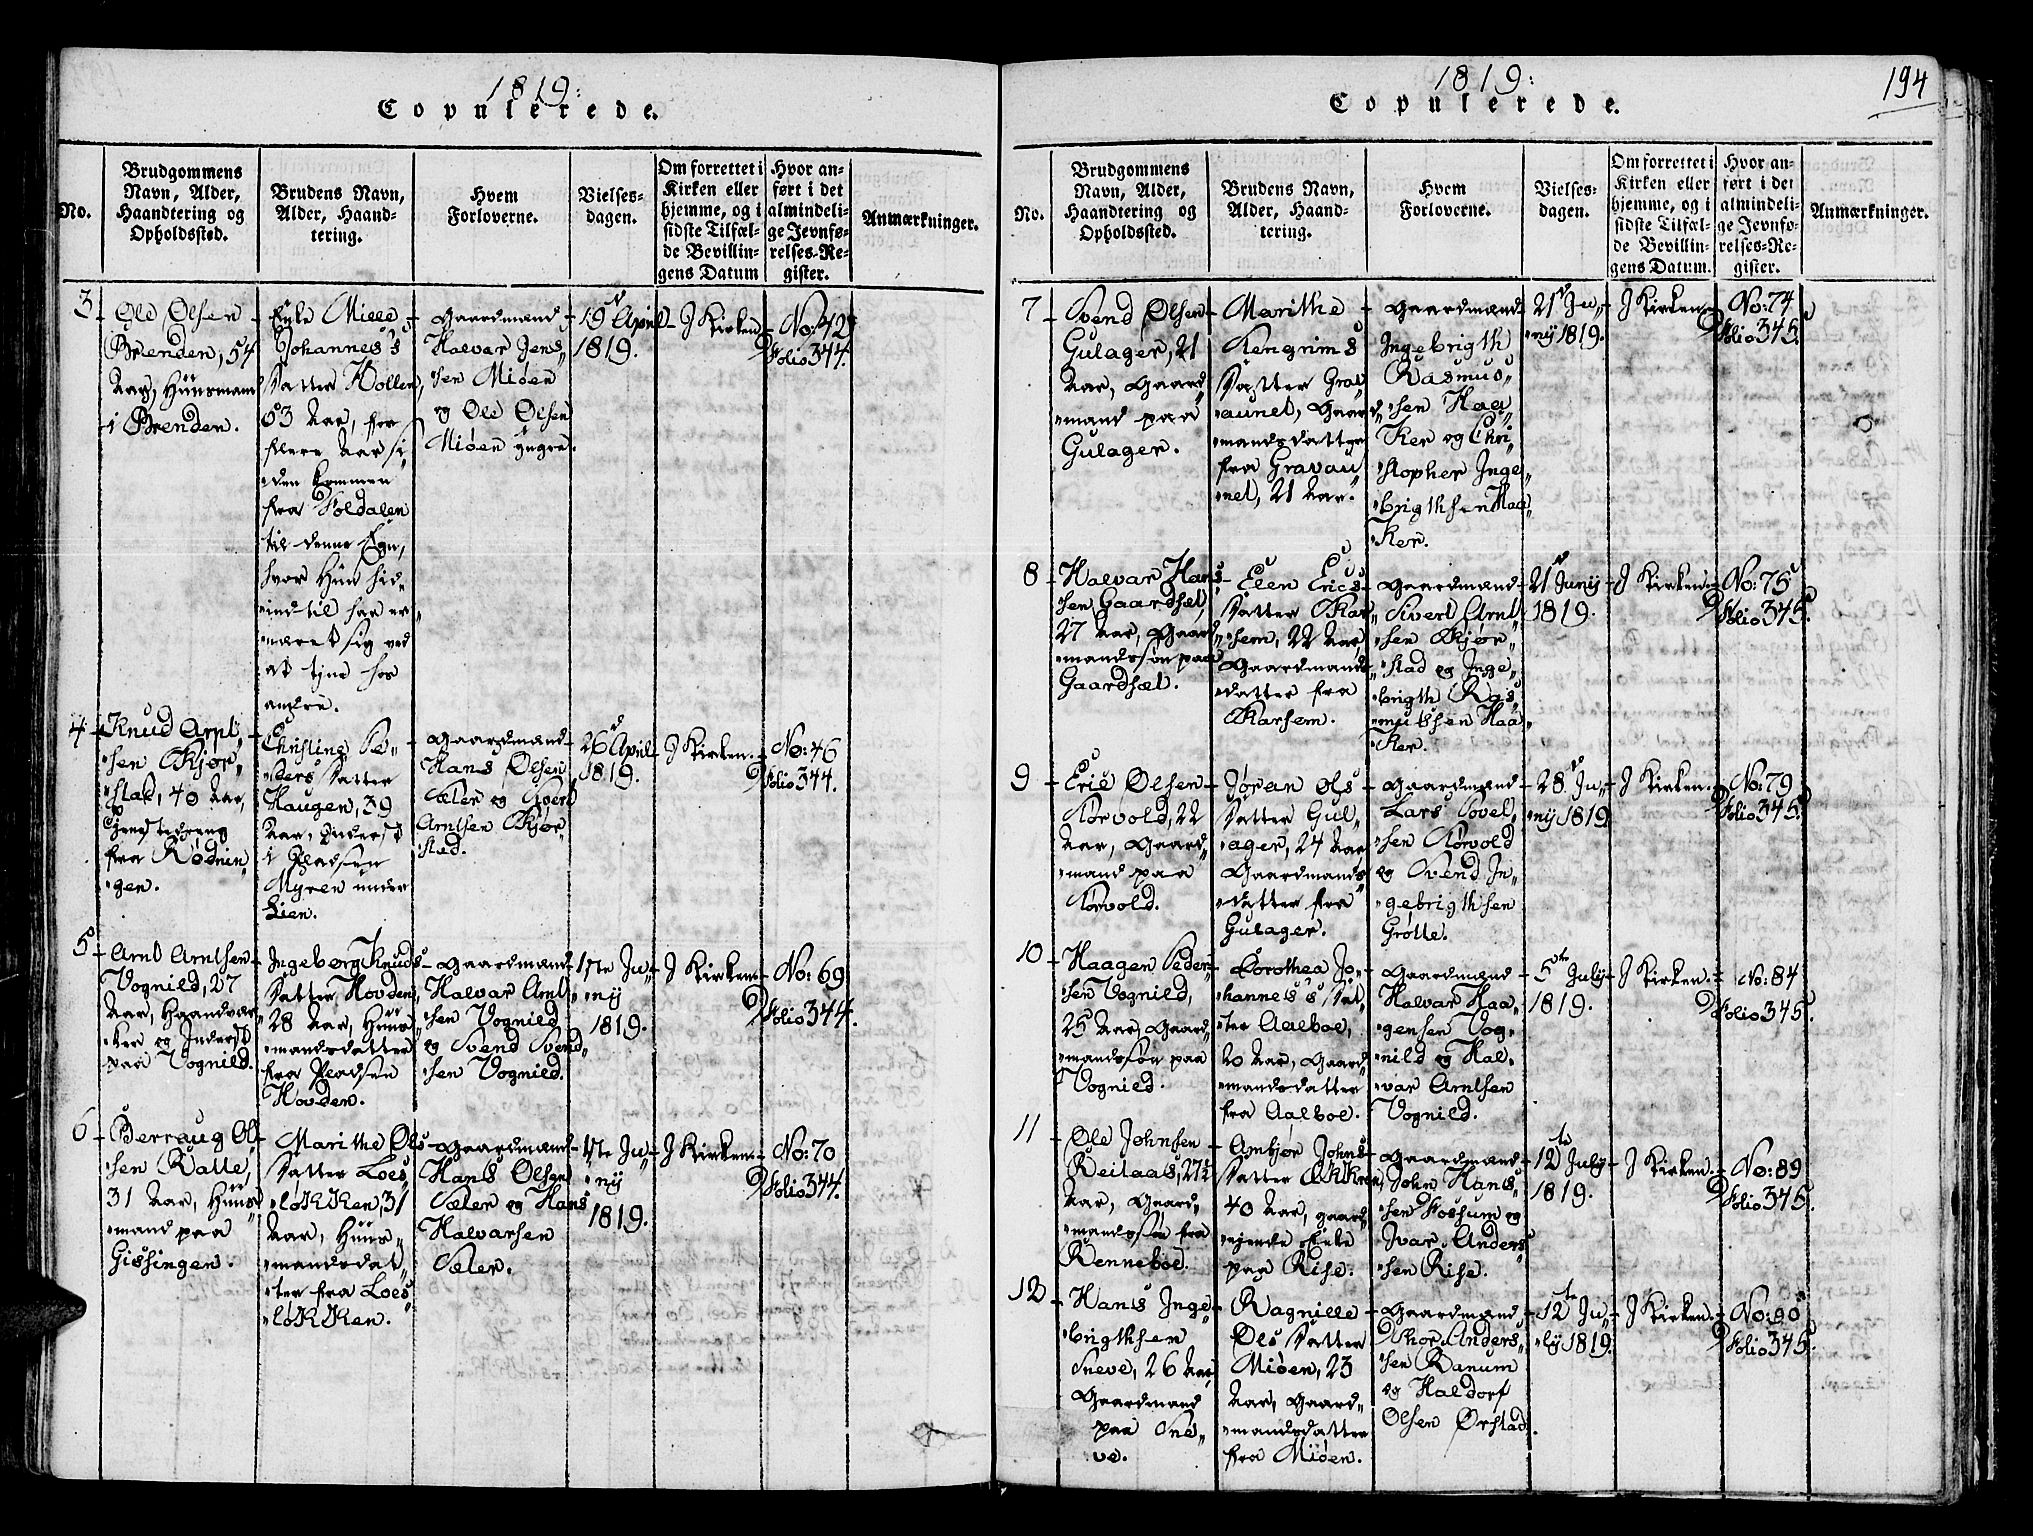 1819:
Copulerede.
No.
Brudgommens
Navn, Alder,
Haandtering og
Opholdssted.
Brudens Navn,
Alder, Haand-
tering.
Hvem
Forloverne.
Vielses-
dagen.
Om forrettet i
Kirken eller
hjemme, og i
sidste Tilfæl-
de Bevillin-
gens Datum
Hvor an-
ført i det
almindeli-
ge Jevnfø-
relses-Re-
gister.
Anmærkninger.
3
Ole Olsen
Brenden, 54
Aar, Huusmand
i Brenden.
Enke Mille
Johannes's
Datter Wollen,
53 Aar, for
flere Aar si-
den kommen
fra Foldalen
til denne Egn,
hvor Hun hid-
indtil har er-
næret sig ved
at tjene hos
andre.
Gaardmænd
Halvar Jens-
sen Miøen
og Ole Olsen
Miøen yngre.
19d April
1819.
J Kirken
No: 42
Folio 344.
4
Knud Arnt-
sen Skjør-
stad, 40 Aar,
Tjenstedreng
fra Rødnin-
gen.
Christine Pe-
ders Datter
Haugen, 39
Aar, Inderst
i Pladsen
Myren under
Lien.
Gaardmænd
Hans Olsen
Sæler og Sivert
Arntsen Skjør-
stad.
26d April
1819.
J Kirken.
No: 46
Folio 344.
5
Arnt Arntsen
Vognild, 27
Aar, Haandvær-
ker og Inderst
paa Vognild.
Ingeborg Knuds
Datter Hovden,
28 Aar, Huus-
mandsdatter
fra Pladsen
Hovden.
Gaardmænd
Halvar Arnt-
sen Vognild
og Svend Svend-
sen Vognild.
17te Ju-
nij
1819.
J Kirken
No: 69
Folio 344.
6
Berraug Ol-
sen Ratte,
31 Aar, Huus-
mand paa
Gissingen.
Marithe Ols
Datter Loes-
løkken, 31
Aar, Huus-
mandsdat-
ter fra Loes-
løkken.
Gaardmænd
Hans Olsen
Sæler og Hans
Halvarsen
Sæler.
17te Ju-
nij
1819.
J Kirken
No: 70
Folio 344.
1819:
194
Copulerede.
No.
Brudgommens
Navn, Alder,
Haandtering og
Opholdssted.
Brudens Navn,
Alder, Haand-
tering.
Hvem
Forloverne.
Vielses-
dagen.
Om forrettet i
Kirken eller
hjemme, og i
sidste Tilfæl-
de Bevillin-
gens Datum.
Hvor an-
ført i det
almindeli-
ge Jevnfø-
relses-Re-
gister.
Anmærkninger.
7
Svend Olsen
Gulager, 21
Aar, Gaard-
mand paa
Gulager.
Marithe
Kengrims
Datter Grav-
aunet, Gaard-
mandsdatter
fra Gravau-
net, 21 Aar.
Gaardmænd
Ingebrigth
Rasmus-
sen Haa-
ker og Chri-
stopher Inge-
brigthsen Haa-
ker.
21d Ju-
nij 1819.
J Kirken.
No: 74
Folio 345.
8
Halvar Han-
sen Gaardsæt,
27 Aar, Gaard-
mandssøn paa
Gaardsæt.
Elen Erics
Datter Skar-
sem, 22 Aar,
Gaardmands-
datter fra
Skarsem.
Gaardmænd
Sivert Arnt-
sen Skjør-
stad og Inge-
brigth Ras-
mussen Haa-
ker.
21d Junij
1819.
J Kirken.
No: 75
Folio 345.
9
Eric Olsen
Sørvold, 22
Aar, Gaard-
mand paa
Sørvold.
Jøran Ols
Datter Gul-
ager, 24 Aar
Gaardmands-
datter fra
Gulager.
Gaardmænd
Lars Povel-
sen Sørvold
og Svend In-
gebrigthsen
Grøtte.
28d Ju-
nij 1819
J Kirken.
No: 79
Folio 345.
10
Haagen Peder-
sen Vognild,
25 Aar, Gaard-
mandssøn paa
Vognild.
Dorothea Jo-
hannes's Dat-
ter Aalboe,
20 Aar, Gaard-
mandsdatter
fra Aalboe.
Gaardmænd
Halvar Haa-
gensen Vog-
nild og Hal-
var Arntsen
Vognild.
5te July
1819.
J Kirken.
No: 84
Folio 345.
11
Ole Johnsen
Reitaas, 27½
Aar, Gaard-
mandssøn fra
Renneboe.
Ambjør Johns
Datter
40 Aar, gaard-
ejende Enke
paa Rise.
Gaardmænd
John Hans-
sen Fossum og
Ivar Anders-
sen Rise.
12te July
1819.
J Kirken.
No: 89
Folio 345.
12
Hans Inge-
brigthsen
Sneve, 26 Aar
Gaardmand
paa Sne-
ve.
Ragnille
Ols Datter
Miøen, 23
Aar, Gaard-
mandsdatter
fra Miøen.
Gaardmænd
Thor Anders-
sen Ranum
og Haldorf
Olsen Ørstad.
12te Ju-
ly 1819.
J Kirken.
No: 90
Folio 345.